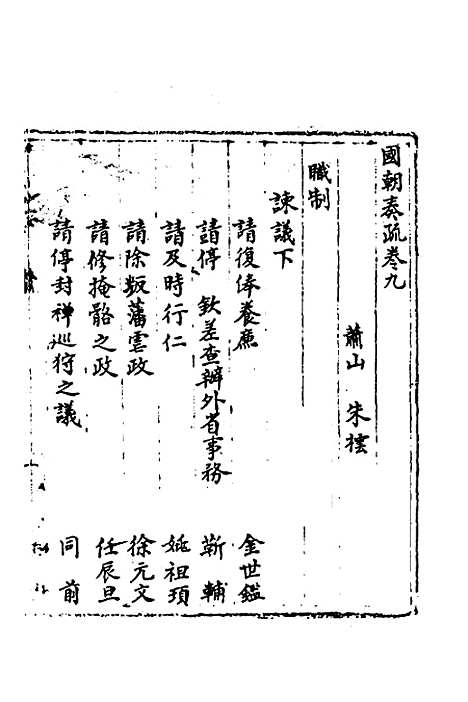 國朝奏疏卷九
蕭山 朱橒
職制
諫議下
請復俸養廉 金世鑑
請停 欽差查辦外省事務 靳輔
請及時行仁 姚祖頊
請除叛藩虐政 徐元文
請修掩骼之政 任辰旦
請停封禅巡狩之議 同前